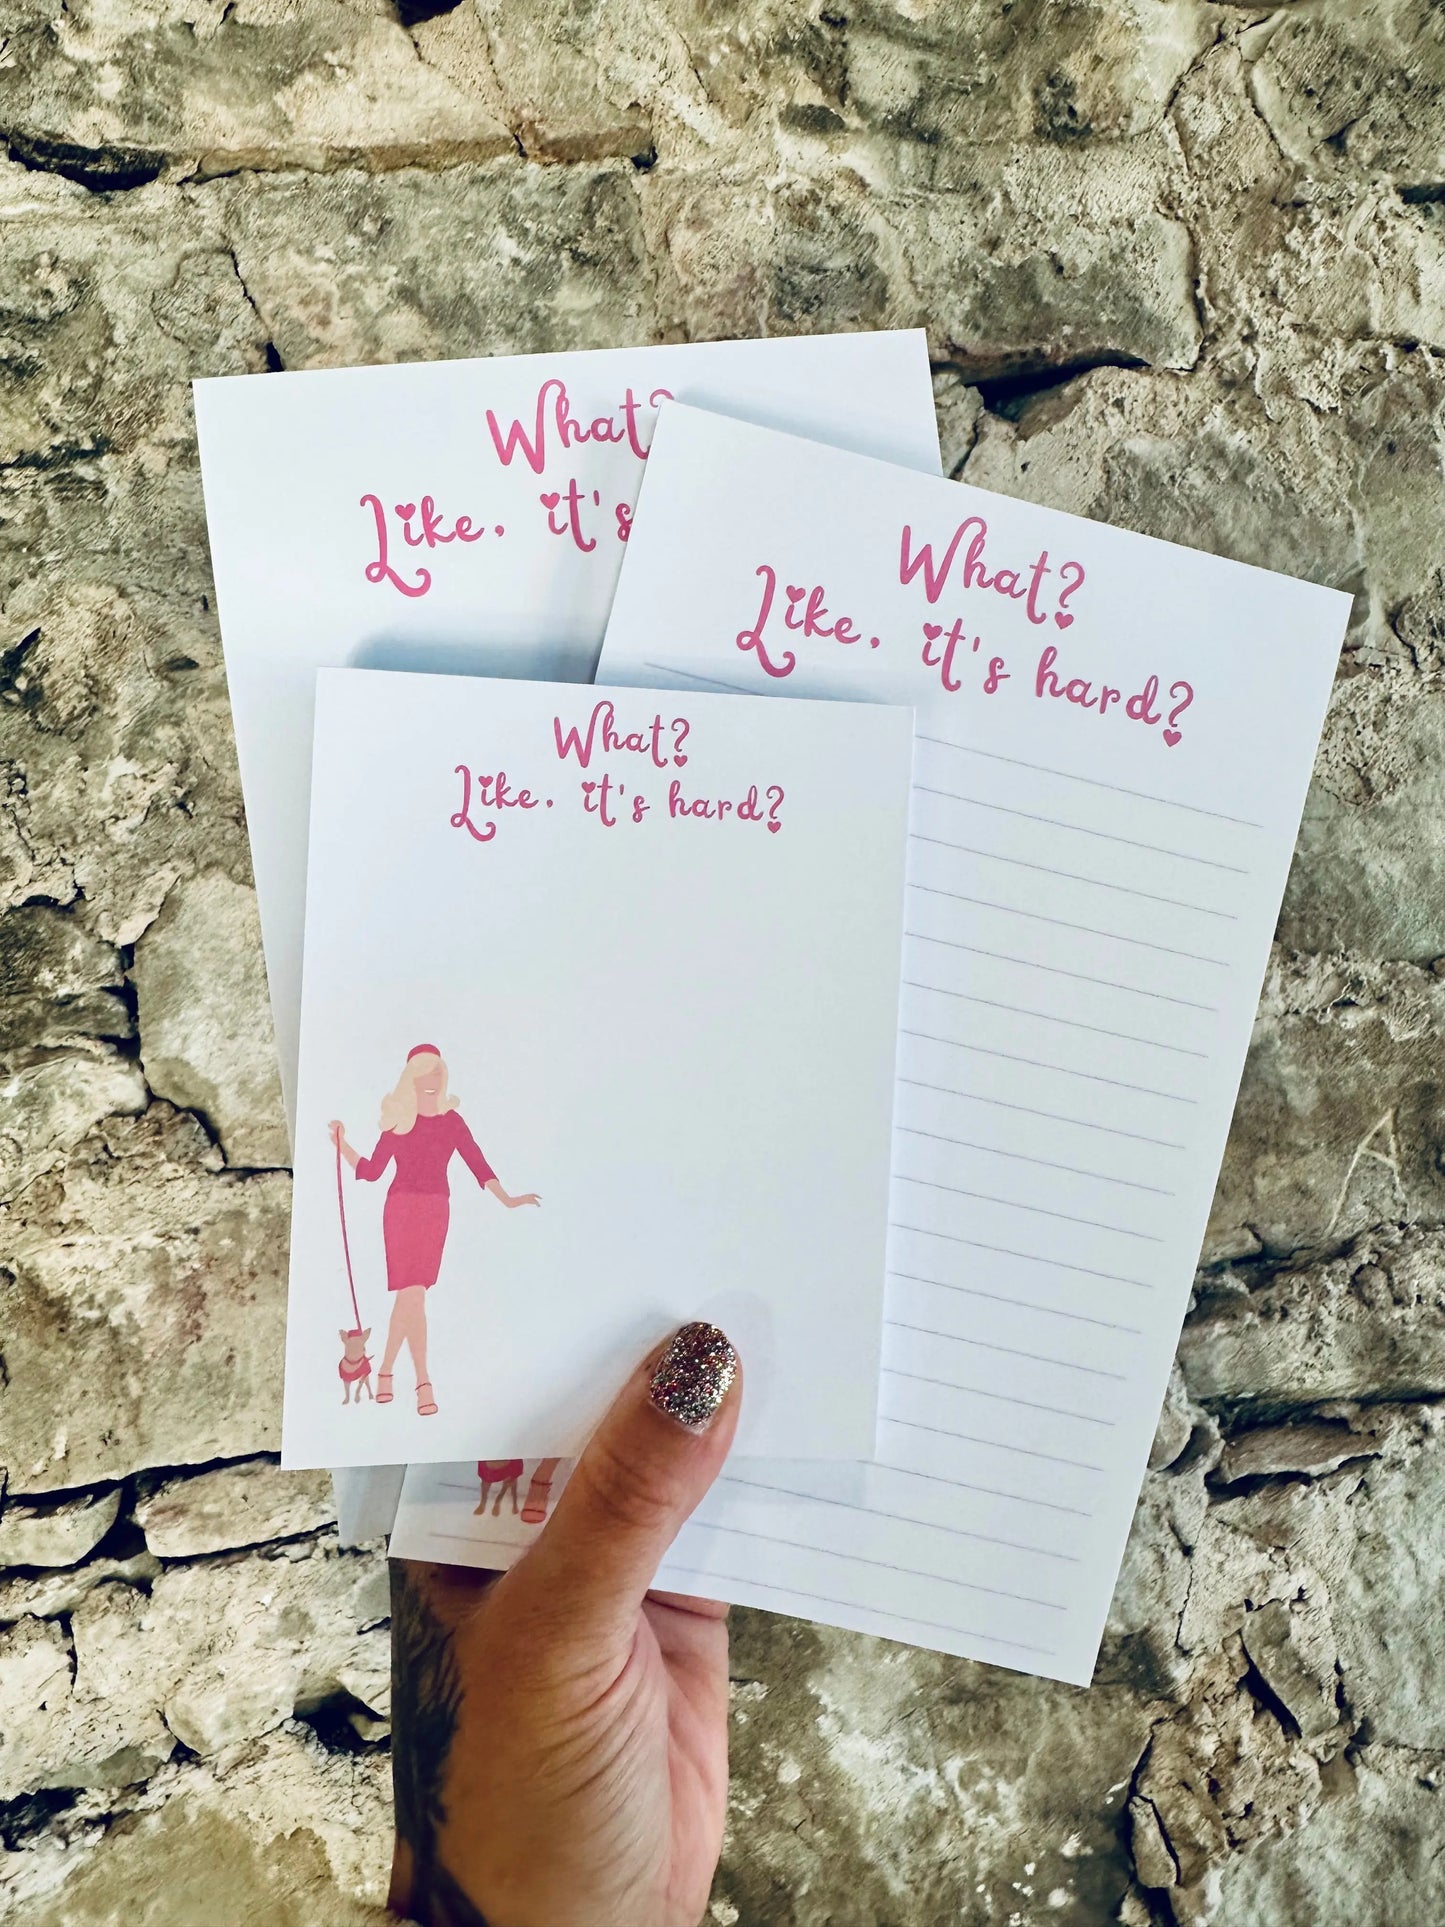 What?
Like, it's
What?
Like, it's hard?
What?
Like, it's hard?